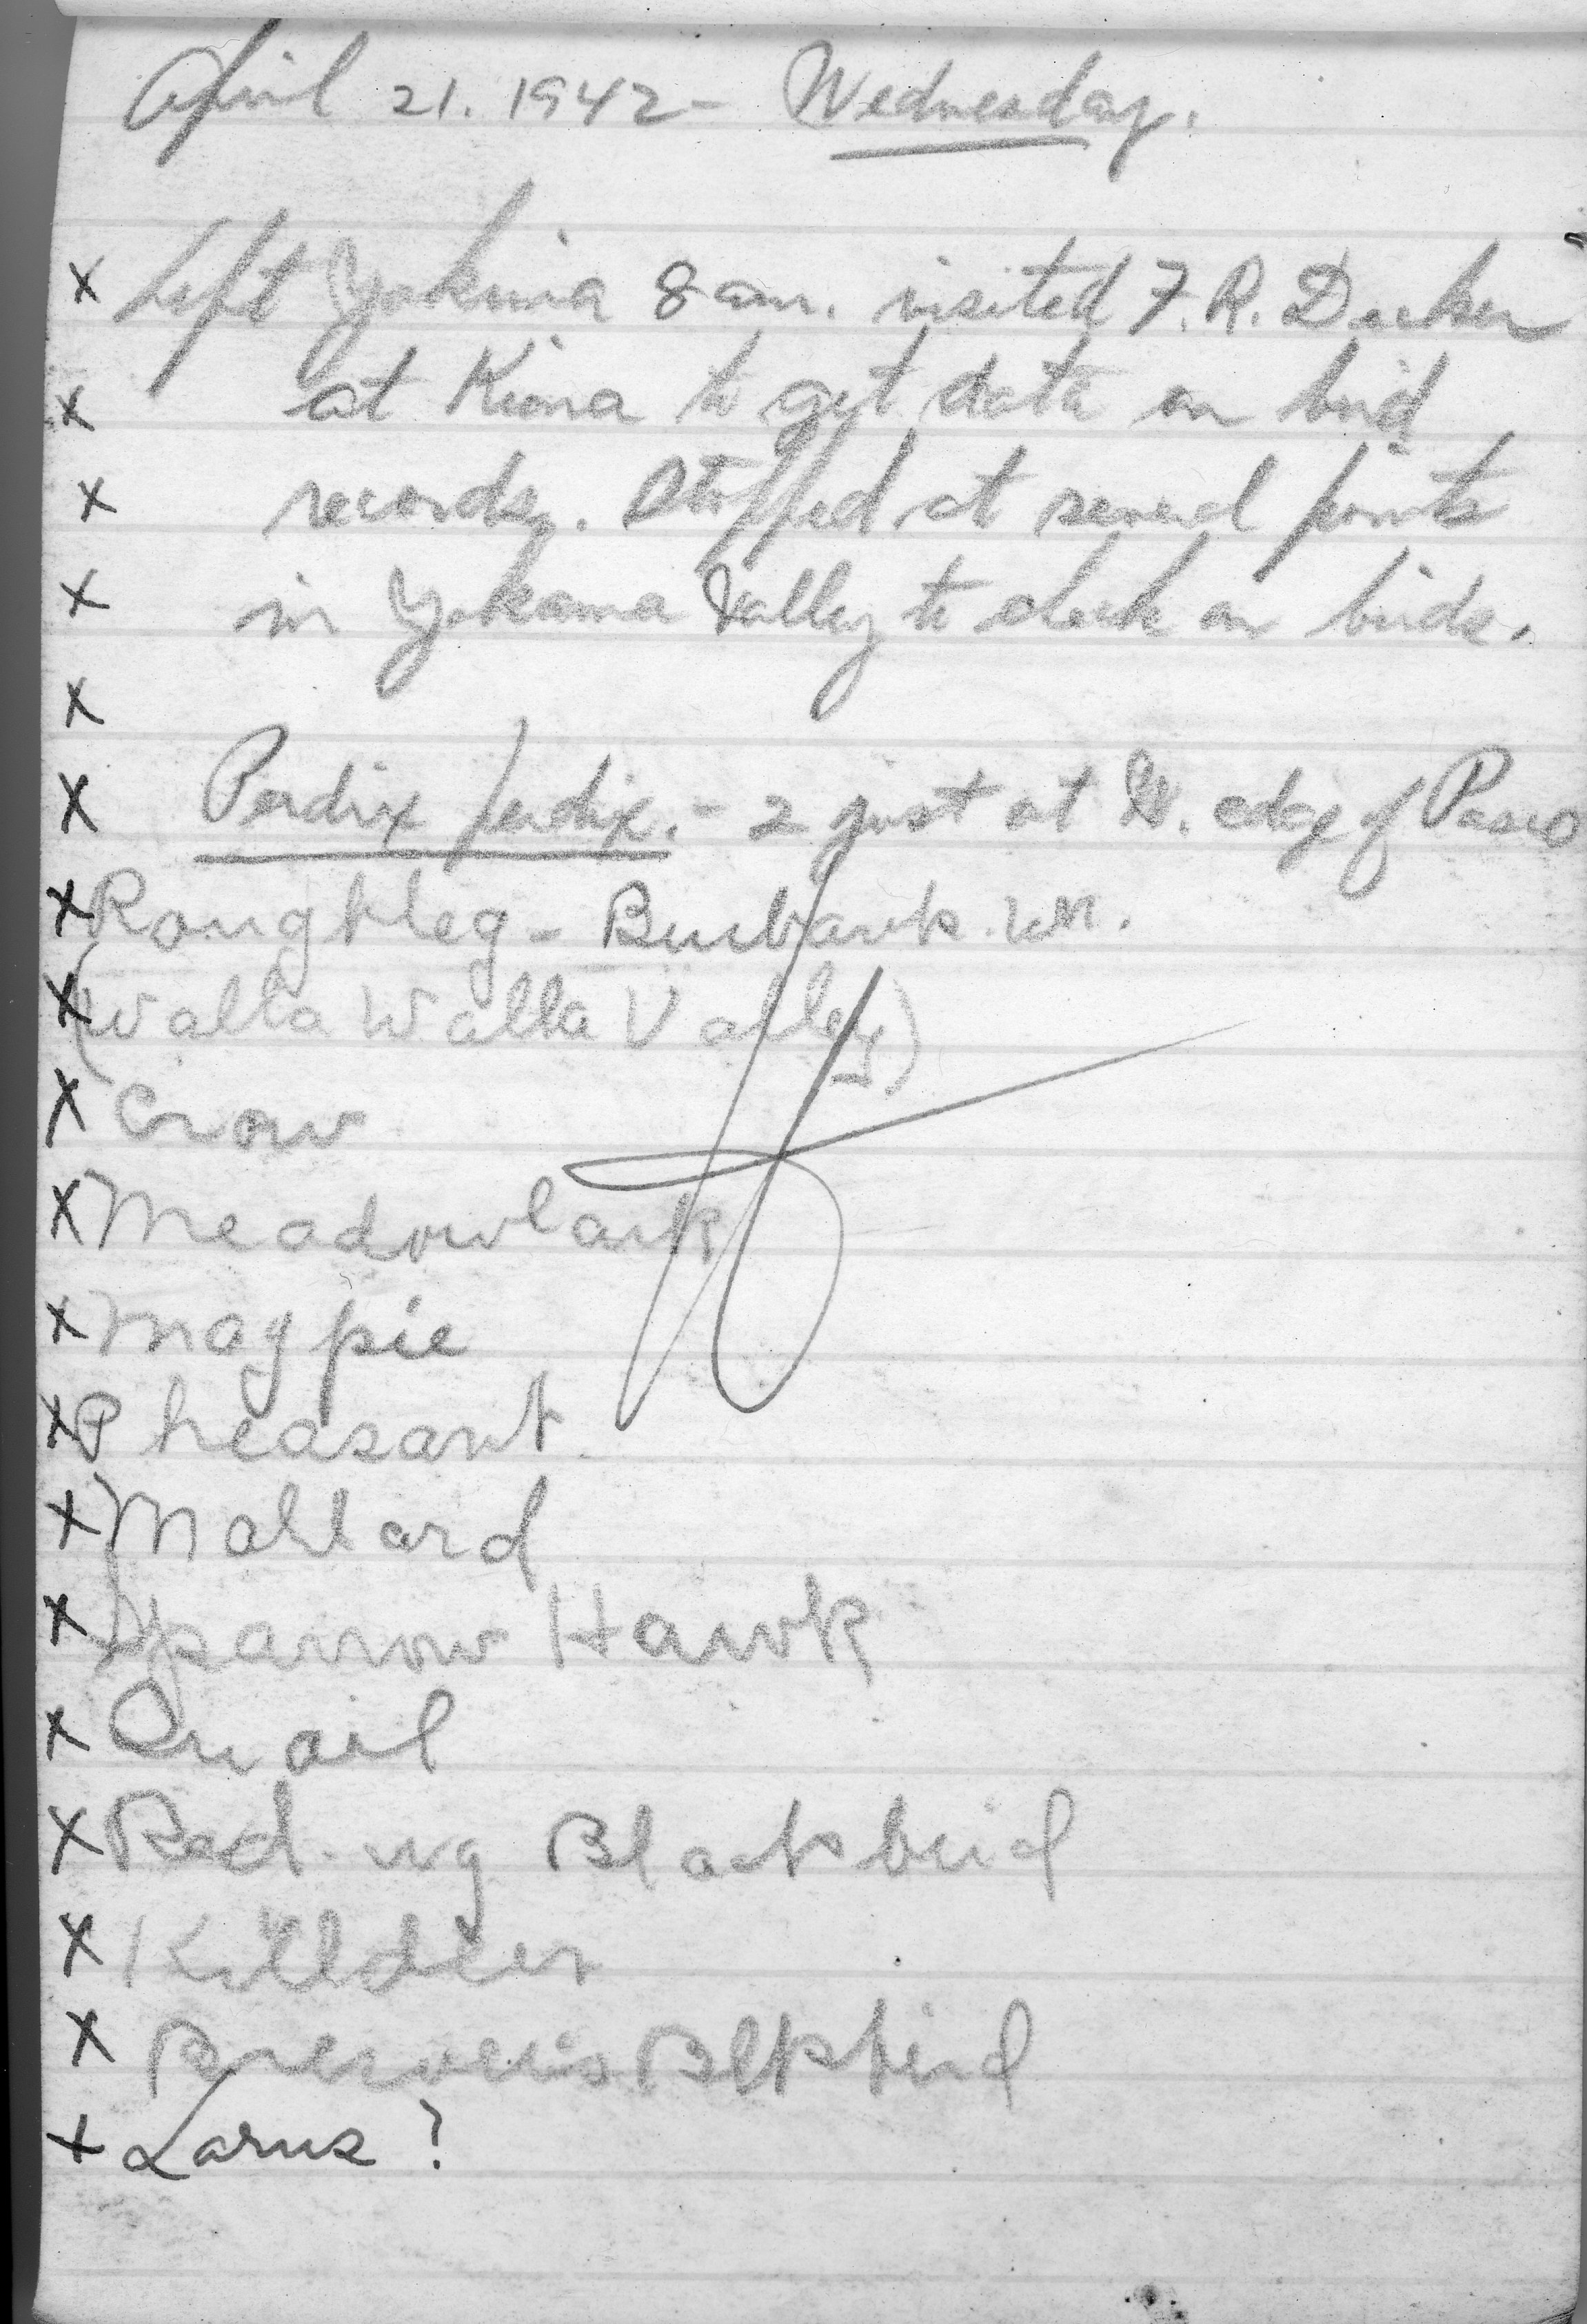 April 21. 1942 - Wednesday.
x Left Yakima 8 am. visited F. R. Decker
x at Kiona to get data on bird
x records. Stopped at several points
x in Yakama Valley to check on birds.
x
x Perdix perdix. - 2 just at W. edge of Pasco
x Roughleg - Burbank. Wn.
x (Walla Walla Valley)
x Crow
x Meadowlark
x Magpie
x Pheasant
x Mallard
x Sparrow Hawk
x Quail
x Red-wg Blackbird
x Killdeer
x Brewers Blkbird
x Larus ?